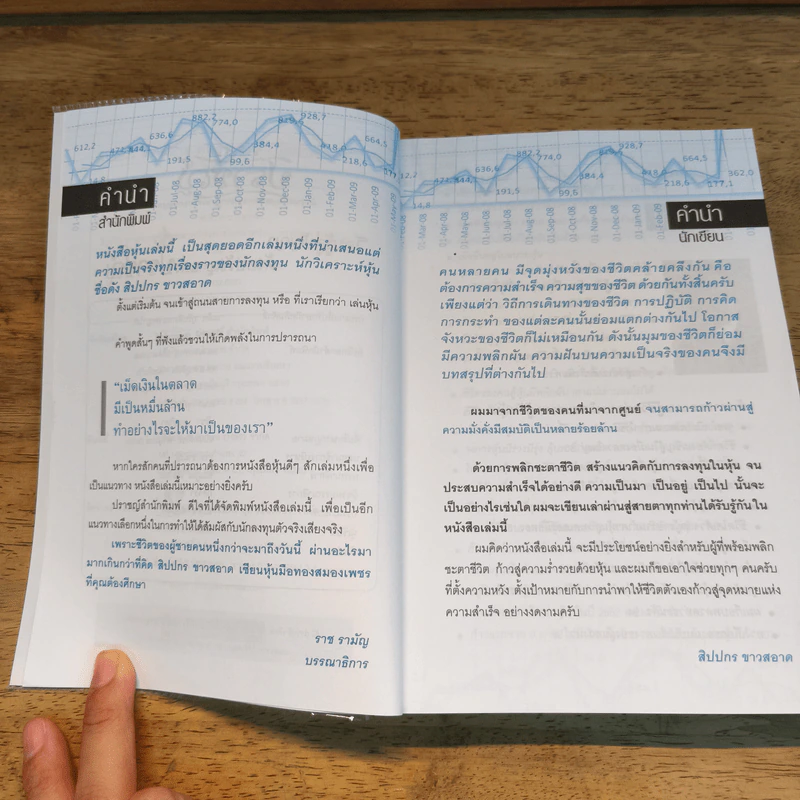 คำนำ
สำนักพิมพ์
หนังสือหุ้นเล่มนี้ เป็นสุดยอดอีกเล่มหนึ่งที่นำเสนอแต่
ความเป็นจริงทุกเรื่องราวของนักลงทุน นักวิเคราะห์หุ้น
ชื่อดัง สิปปกร ขาวสอาด
ตั้งแต่เริ่มต้น จนเข้าสู่ถนนสายการลงทุน หรือ ที่เราเรียกว่า เล่นหุ้น
คำพูดสั้นๆ ที่ฟังแล้วชวนให้เกิดพลังในการปรารถนา
“เม็ดเงินในตลาด
มีเป็นหมื่นล้าน
ทำอย่างไรจะให้มาเป็นของเรา”
หากใครสักคนที่ปรารถนาต้องการหนังสือหุ้นดีๆ สักเล่มหนึ่งเพื่อ
เป็นแนวทาง หนังสือเล่มนี้เหมาะอย่างยิ่งครับ
ปราชญ์สำนักพิมพ์ ดีใจที่ได้จัดพิมพ์หนังสือเล่มนี้ เพื่อเป็นอีก
แนวทางเลือกหนึ่งในการทำให้ได้สัมผัสกับนักลงทุนตัวจริงเสียงจริง
เพราะชีวิตของผู้ชายคนหนึ่งกว่าจะมาถึงวันนี้ ผ่านอะไรมา
มากเกินกว่าที่คิด สิปปกร ขาวสอาด เซียนหุ้นมือทองสมองเพชร
ที่คุณต้องศึกษา
ราช รามัญ
บรรณาธิการ
คำนำ
นักเขียน
คนหลายคน มีจุดมุ่งหวังของชีวิตคล้ายคลึงกัน คือ
ต้องการความสำเร็จ ความสุขของชีวิต ด้วยกันทั้งสิ้นครับ
เพียงแต่ว่า วิถีการเดินทางของชีวิต การปฏิบัติ การคิด
การกระทำ ของแต่ละคนนั้นย่อมแตกต่างกันไป โอกาส
จังหวะของชีวิตก็ไม่เหมือนกัน ดังนั้นมุมของชีวิตก็ย่อม
มีความพลิกผัน ความฝันบนความเป็นจริงของคนจึงมี
บทสรุปที่ต่างกันไป
ผมมาจากชีวิตของคนที่มาจากศูนย์ จนสามารถก้าวผ่านสู่
ความมั่งคั่งมีสมบัติเป็นหลายร้อยล้าน
ด้วยการพลิกชะตาชีวิต สร้างแนวคิดกับการลงทุนในหุ้น จน
ประสบความสำเร็จได้อย่างดี ความเป็นมา เป็นอยู่ เป็นไป นั้นจะ
เป็นอย่างไรเช่นใด ผมจะเขียนเล่าผ่านสู่สายตาทุกท่านได้รับรู้กันใน
หนังสือเล่มนี้
ผมคิดว่าหนังสือเล่มนี้ จะมีประโยชน์อย่างยิ่งสำหรับผู้ที่พร้อมพลิก
ชะตาชีวิต ก้าวสู่ความร่ำรวยด้วยหุ้น และผมก็ขอเอาใจช่วยทุกๆ คนครับ
ที่ตั้งความหวัง ตั้งเป้าหมายกับการนำพาให้ชีวิตตัวเองก้าวสู่จุดหมายแห่ง
ความสำเร็จ อย่างงดงามครับ
สิปปกร ขาวสอาด